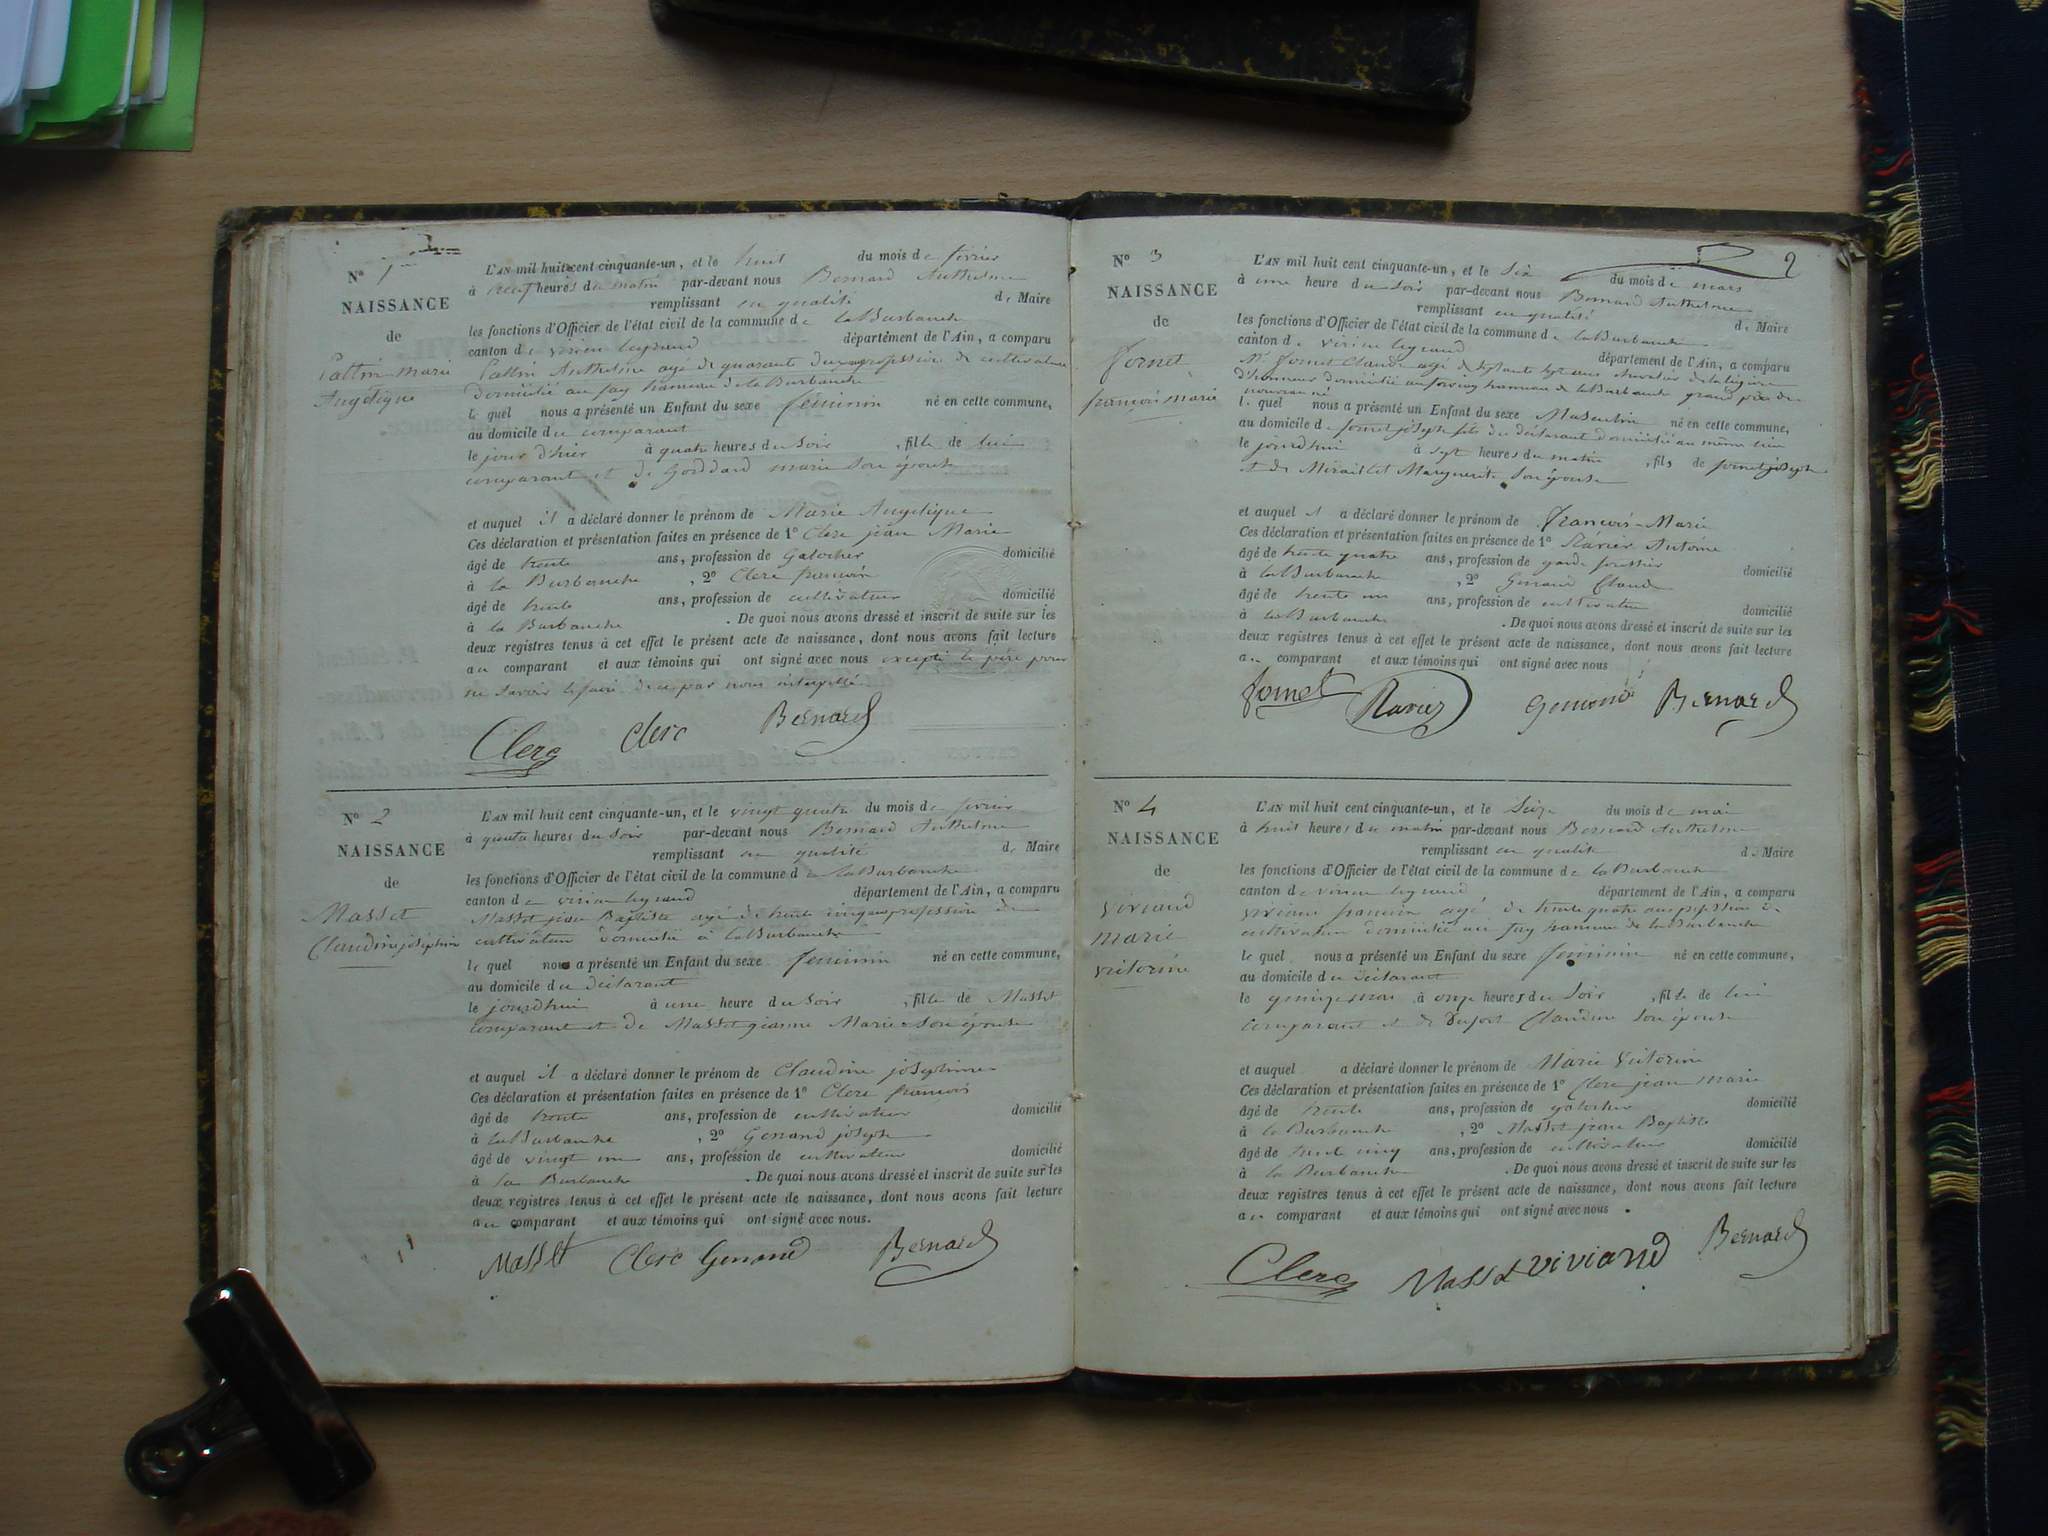 N° 1
NAISSANCE
de
Pattin marie
Angélique
L'AN mil huit cent cinquante-un, et le huit du mois de févrièr
à neuf heures du matin par-devant nous Bernard Anthelme
remplissant en qualité de Maire
les fonctions d'Officier de l'état civil de la commune de la Burbanche
canton de virieu legrand département de l'Ain, a comparu
Pattin Anthelme agé de quarant deux profession de cultivateur
domicilié au fay hameau de la Burbanche
le quel nous a présenté un Enfant du sexe féminin né en cette commune,
au domicile du comparant
le jour d'hier à quatre heures du soir, fille de lui
comparant et de Goddard marie son épouse
et auquel il a déclaré donner le prénom de Marie Angelique
Ces déclaration et présentation faites en présence de 1° Clerc jean Marie
âgé de trente ans, profession de Galocher domicilié
à la Burbanche, 2° Clerc francois
âgé de trente ans, profession de cultivateur domicilié
à la Burbanche. De quoi nous avons dressé et inscrit de suite sur les
deux registres tenus à cet effet le présent acte de naissance, dont nous avons fait lecture
au comparant et aux témoins qui ont signé avec nous excepté le père pour
ne savoir le faire de ce par nous interpellé
Clerc Clerc Bernard
N° 2
NAISSANCE
de
Masset
Claudine joséphine
L'AN mil huit cent cinquante-un, et le vingt quatre du mois de févrièr
à quatre heures du soir par-devant nous Bernard Anthelme
remplissant en qualité de Maire
les fonctions d'Officier de l'état civil de la commune de la Burbanche
canton de virieu legrand département de l'Ain, a comparu
Masset jean Baptiste agé de trente cinq ans profession de
cultivateur domicilié à la Burbanche
le quel nous a présenté un Enfant du sexe féminin né en cette commune,
au domicile du déclarant
le jourdhui à une heure du soir, fille de Masset
comparant et de Masset jeanne Marie son épouse
et auquel il a déclaré donner le prénom de Claudine joséphine
Ces déclaration et présentation faites en présence de 1° Clerc francois
âgé de trente ans, profession de cultivateur domicilié
à la Burbanche, 2° Genand joseph
âgé de vingt un ans, profession de cultivateur domicilié
à la Burbanche. De quoi nous avons dressé et inscrit de suite sur les
deux registres tenus à cet effet le présent acte de naissance, dont nous avons fait lecture
au comparant et aux témoins qui ont signé avec nous.
Masset Clerc Genand Bernard
2
N° 3
NAISSANCE
de
fornet
françois marie
L'AN mil huit cent cinquante-un, et le six du mois de mars
à une heure du soir par-devant nous Bernard Anthelme
remplissant en qualité de Maire
les fonctions d'Officier de l'état civil de la commune de la Burbanche
canton de virieu legrand département de l'Ain, a comparu
Mr fornet Claude agé de septante sept ans chevalier de la légion
d'honneur domicilié au hameau de la Burbanche grand père du
nouveau né
le quel nous a présenté un Enfant du sexe Masculin né en cette commune,
au domicile de fornet joseph fils du déclarant domicilié au même lieu
le jourdhui à sept heures du matin, fils de fornet joseph
et de Miraillet Marguerite son épouse
et auquel il a déclaré donner le prénom de françois-Marie
Ces déclaration et présentation faites en présence de 1° Ravier Antoine
âgé de trente quatre ans, profession de garde domicilié
à la Burbanche, 2° Genand Claude
âgé de trente un ans, profession de cultivateur domicilié
à la Burbanche. De quoi nous avons dressé et inscrit de suite sur les
deux registres tenus à cet effet le présent acte de naissance, dont nous avons fait lecture
au comparant et aux témoins qui ont signé avec nous
fornet Ravier Genand Bernard
N° 4
NAISSANCE
de
viviand
marie
victorine
L'AN mil huit cent cinquante-un, et le Seize du mois de mai
à huit heures du matin par-devant nous Bernard Anthelme
remplissant en qualité de Maire
les fonctions d'Officier de l'état civil de la commune de la Burbanche
canton de virieu legrand département de l'Ain, a comparu
viviand francois agé de trente quatre ans profession de
cultivateur domicilié au fay hameau de la Burbanche
le quel nous a présenté un Enfant du sexe féminin né en cette commune,
au domicile du déclarant
le quinze mai à onze heures du soir, fille de lui
comparant et de Dufort Claudine son épouse
et auquel a déclaré donner le prénom de Marie victorine
Ces déclaration et présentation faites en présence de 1° Clerc jean marie
âgé de trente ans, profession de galocher domicilié
à la Burbanche, 2° Masset jean Baptiste
âgé de trente cinq ans, profession de cultivateur domicilié
à la Burbanche. De quoi nous avons dressé et inscrit de suite sur les
deux registres tenus à cet effet le présent acte de naissance, dont nous avons fait lecture
au comparant et aux témoins qui ont signé avec nous.
Clerc Masset viviand Bernard